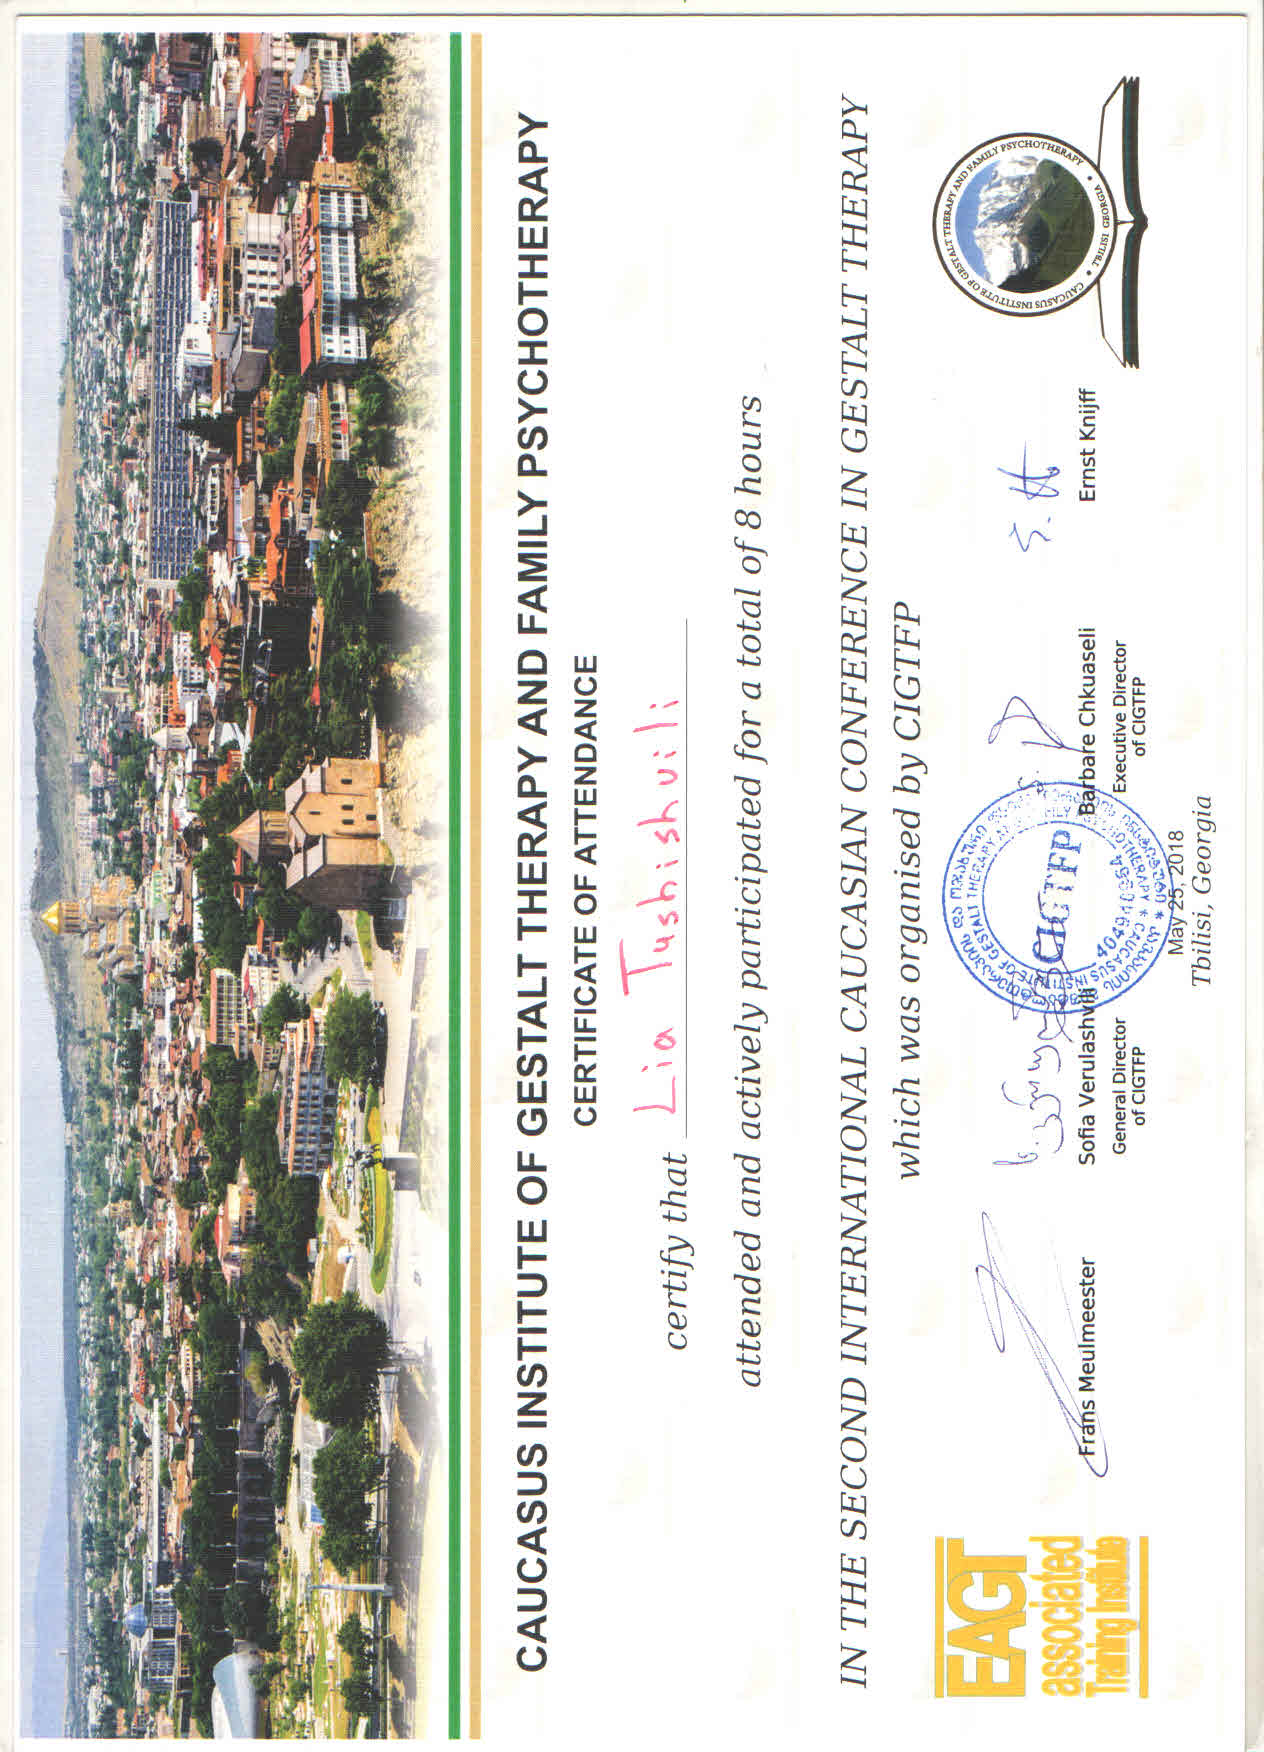 CAUCASUS INSTITUTE OF GESTALT THERAPY AND FAMILY PSYCHOTHERAPY
CERTIFICATE OF ATTENDANCE
certify that Lia Tushishvili
attended and actively participated for a total of 8 hours
IN THE SECOND INTERNATIONAL CAUCASIAN CONFERENCE IN GESTALT THERAPY
which was organised by CIGTFP
EAGT
associated
Training Institute
Frans Meulmeester
Sofia Verulashvili
General Director
of CIGTFP
CIGTFP
Barbare Chkuaseli
Executive Director
of CIGTFP
Ernst Knijff
CAUCASUS INSTITUTE OF GESTALT THERAPY AND FAMILY PSYCHOTHERAPY
TBILISI GEORGIA
May 25, 2018
Tbilisi, Georgia